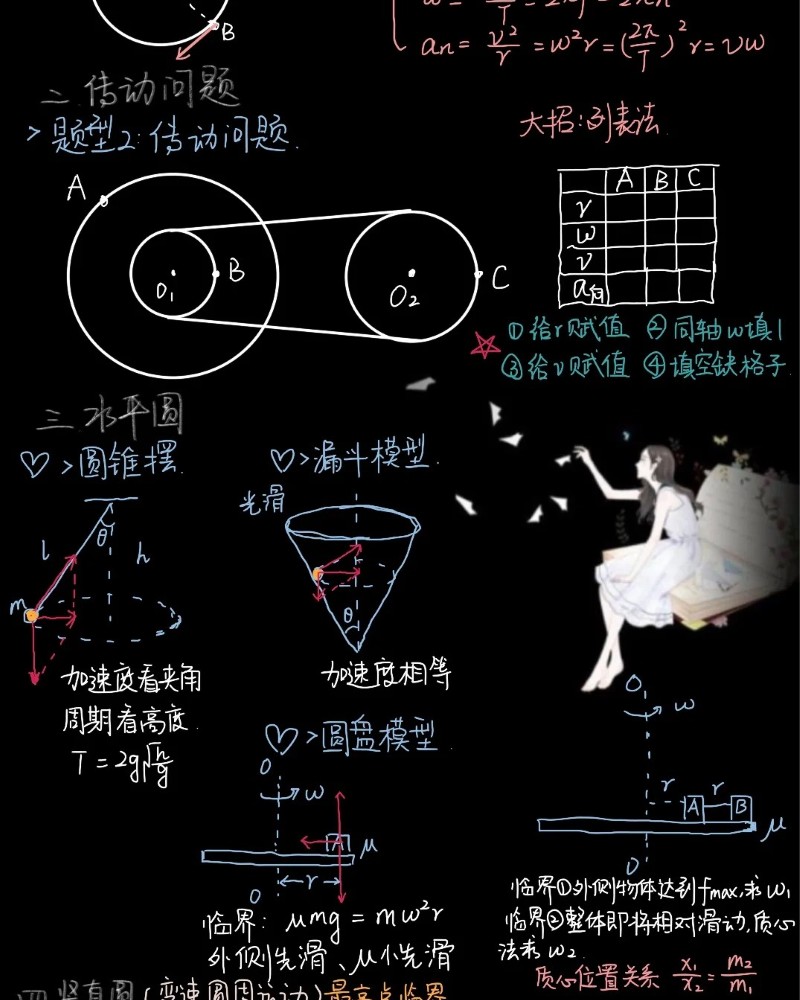 B
an = v²/r = ω²r = (2π/T)²r = vω
二.传动问题
> 题型2:传动问题.
大招:列表法
A B C
r
ω
v
a向
A
B
O₁
O₂
C
①给r赋值 ②同轴ω填1
③给v赋值 ④填空缺格子.
三.水平圆
♡>圆锥摆.
♡>漏斗模型.
光滑
θ
l
h
m
θ
加速度看夹角
周期看高度.
T = 2g√(h/g)
加速度相等
♡>圆盘模型.
O
ω
A
μ
r
O
临界: μmg = mω²r
外侧先滑、μ小先滑
O,
ω
r r
A B
μ
O'
临界①外侧物体达到fmax,求ω₁
临界②整体即将相对滑动,质心
法求ω₂.
质心位置关系 x₁/x₂ = m₂/m₁
四.竖直圆(变速圆周运动)最高点临界